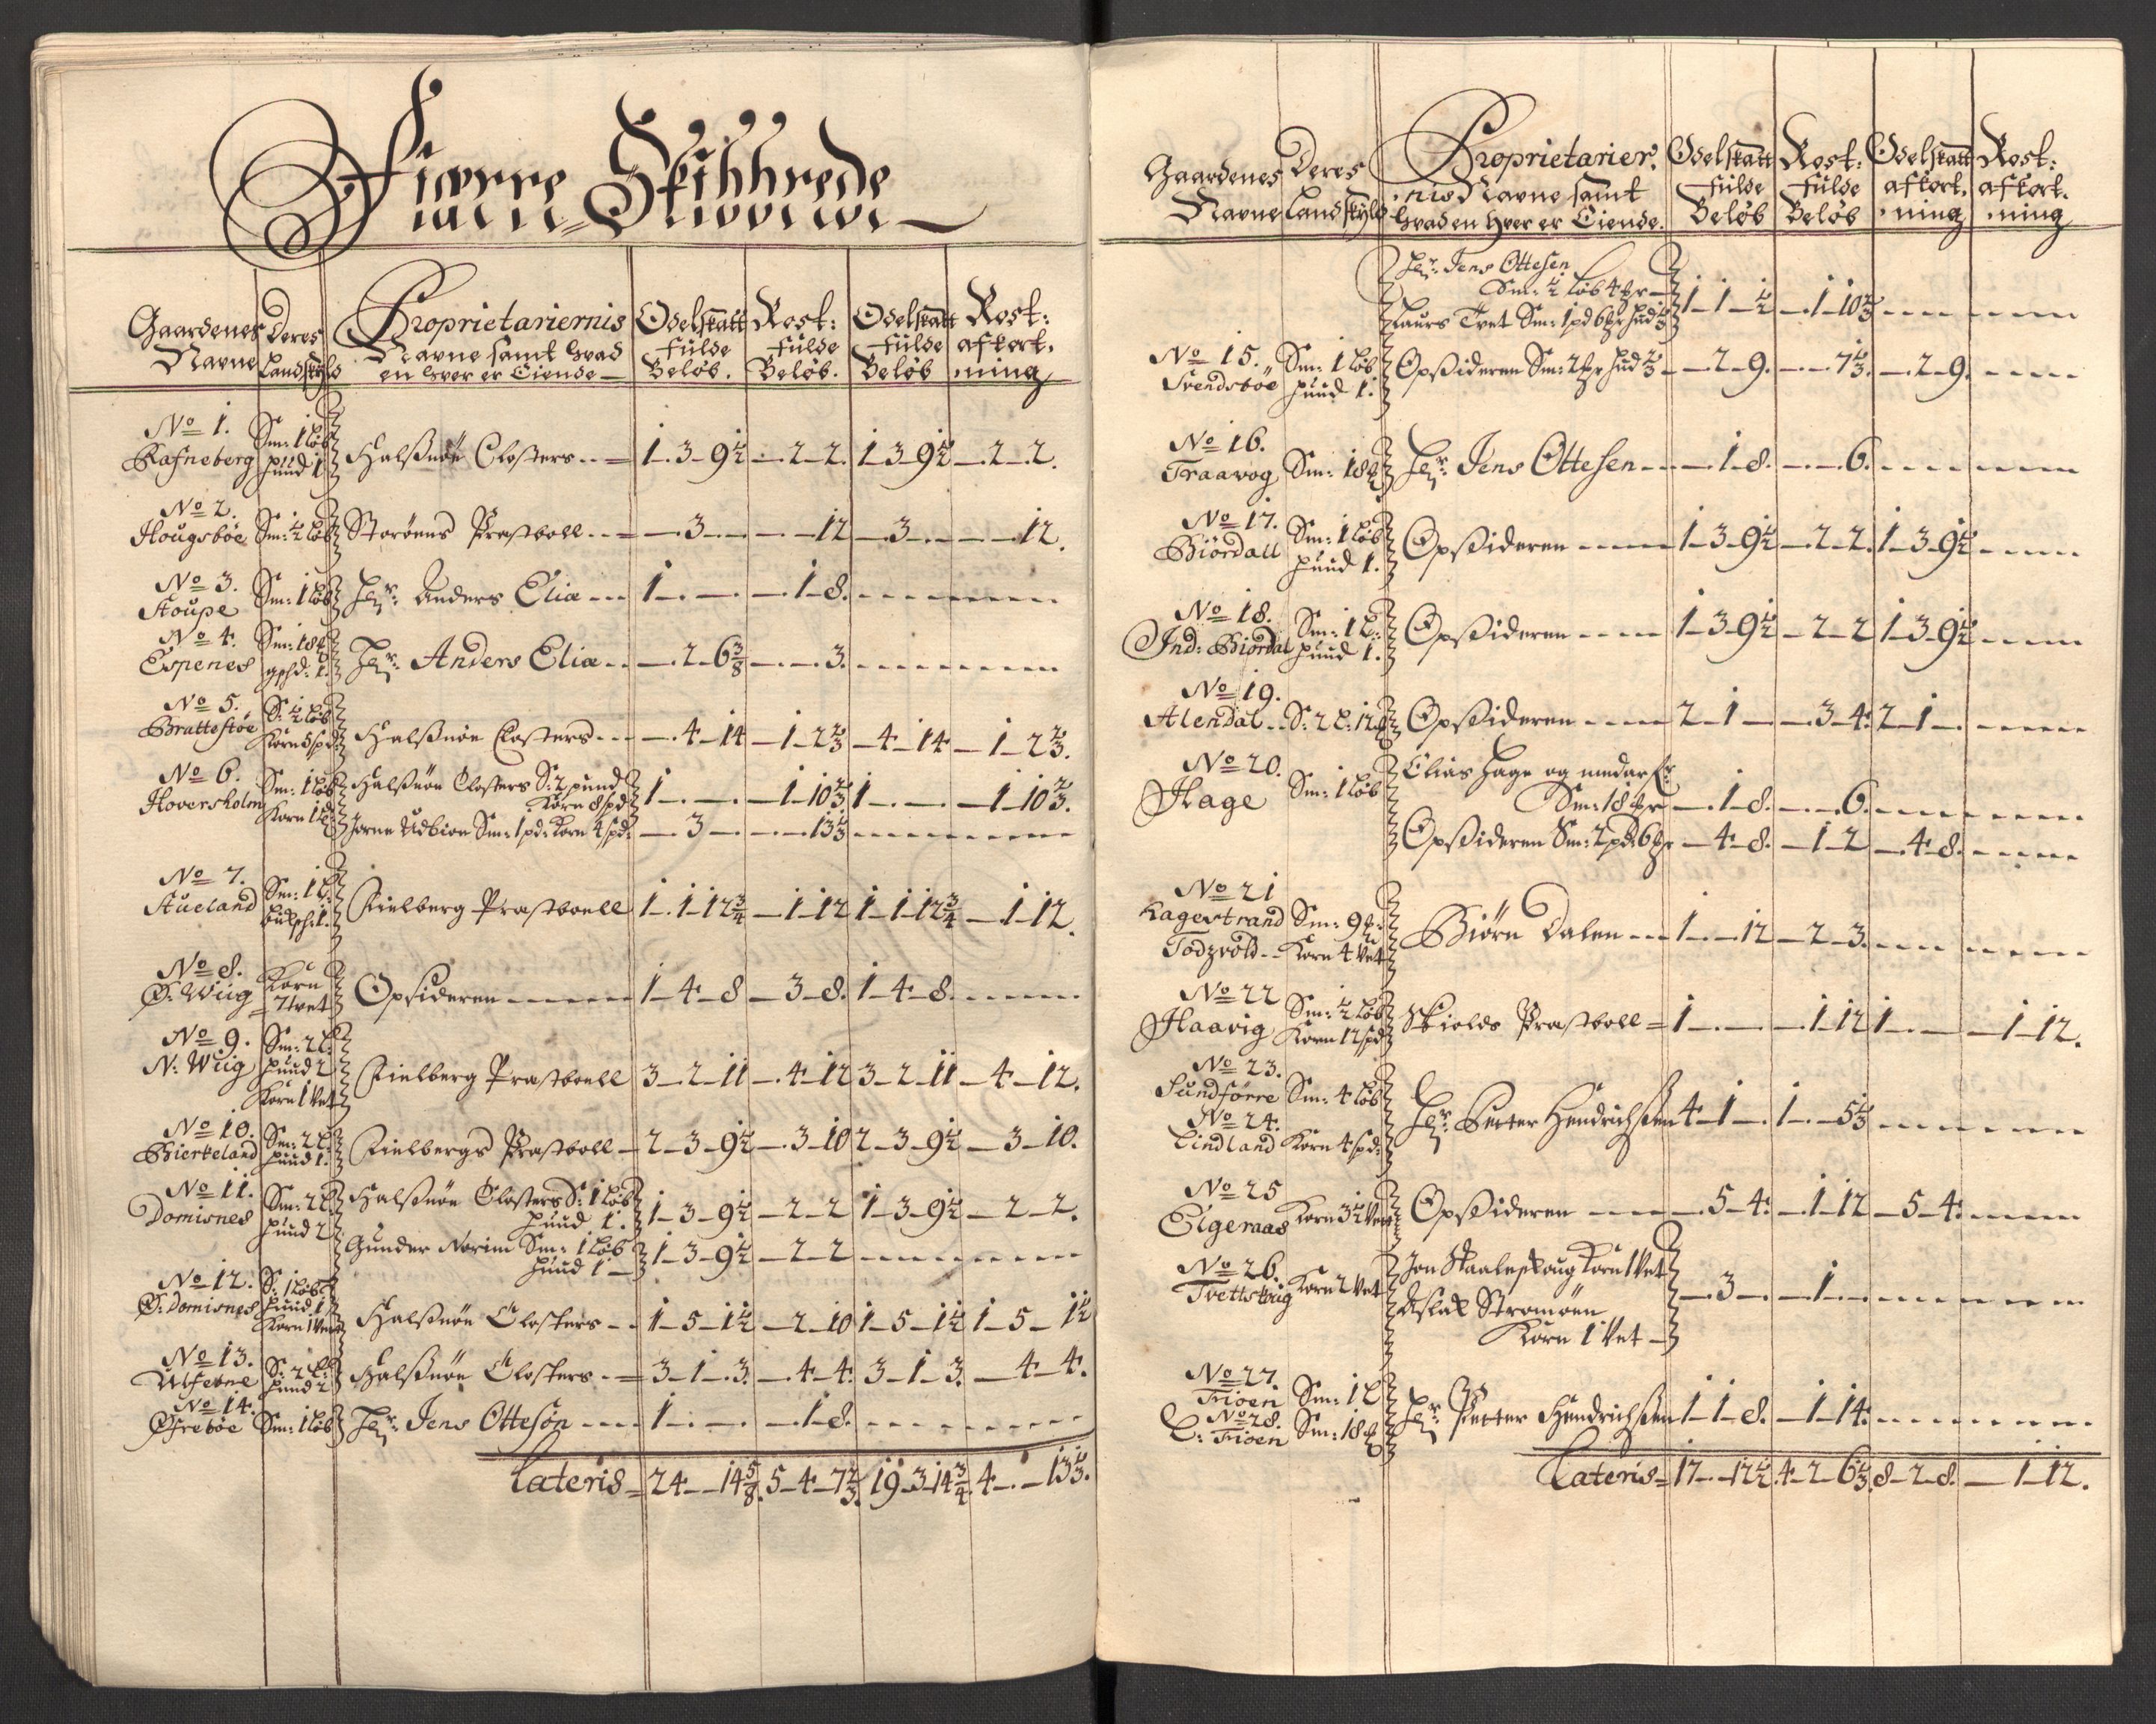 Fierre Skibbrede
Gaardenes Navne
Deres Landskyld
Proprietariernis Navne samt hvad en hver er Eiende
Odelskatt fulde Beløb.
Rost: fulde Beløb.
Odelskatt fulde Beløb
Rost: afkort, ning
No 1. Rafneberg Sm: 1 løb huud 1 Halsnøe Closters 1-3-9 1/2 -2-2. 1-3-9 1/2 -2-2.
No 2. Hougsbøe Sm: 1/2 løb Storøens Præstboll -3- -12 -3- -12.
No 3. Stoupe Sm: 1 løb Hr: Anders Eliæ 1- -1-8.
No 4. Espenes Sm: 18 gshd: 1. Hr: Anders Eliæ -2-6 3/8 -3.
No 5. Brattestøe S: 1/2 løb Korn 5 spd Halsnøe Closters -4-14 -1-2 2/3 -4-14 -1-2 2/3.
No 6. Hoversholm Sm: 1 løb Korn 1 Halsnøe Closters S: 2 pund Korn 8 spd 1- -1-10 2/3 1- -1-10 2/3.
Jorne Udbioe Sm: 1 pd: Korn 4 spd: -3- -13 1/3
No 7. Aueland Sm: 1 L: buksh: 1. Fielberg Præstboell 1-1-12 3/4 -1-12 1-1-12 3/4 -1-12.
No 8. Ø: Wiig Korn 7 vet Opsideren 1-4-8 -3-8. 1-4-8.
No 9. N: Wiig Sm: 2 L: huud 2 Korn 1 Vet Fielberg Præstboell 3-2-11 -4-12 3-2-11 -4-12.
No 10. Bierkeland Sm: 2 L huud 1. Fielbergs Præstboll 2-3-9 1/2 -3-10 2-3-9 1/2 -3-10.
No 11. Domisnes Sm: 2 L huud 2 Halsnøe Closters S: 1 løb huud 1. 1-3-9 1/2 -2-2 1-3-9 1/2 -2-2.
Gunder Norim Sm: 1 løb huud 1 1-3-9 1/2 -2-2
No 12. Ø: Domisnes S: 1 løb huud 1 Korn 1 Vet Halsnøe Closters 1-5-1 1/2 -2-10 1-5-1 1/2 1-5-1 1/2
No 13. Ulfevne S: 2 L: huud 2 Halsnøe Closters 3-1-3. -4-4. 3-1-3. -4-4.
No 14. Øfrebøe Sm: 1 løb Hr: Jens Ottesøn 1- -1-8.
Lateris 24- -14 5/8. 5-4-7 2/3. 19-3-14 3/4 4- -13 1/3.
Gaardenes Navne
Deres Landskyld
Proprietarier, nis Navne samt hvad en hver er Eiende.
Odelskatt fulde Beløb
Rost: fulde Beløb
Odelskatt afkort, ning
Rost: afkort, ning
Hr: Jens Ottesen
Sm: 1/2 løb 4
Laurs Tvet Sm: 1 pd 6 hud 1/3 1-1-1/2 -1-10 2/3
No 15. Svendsbøe Sm: 1 løb huud 1. Opsideren Sm: 2 hud 2/3 -2-9. -7 1/3 -2-9.
No 16. Traavog Sm: 18 Hr: Jens Ottesen -1-8. -6.
No 17. Biørdall Sm: 1 løb huud 1. Opsideren 1-3-9 1/2 -2-2. 1-3-9 1/2
No 18. Ind: Biørdal Sm: 1 L: huud 1. Opsideren 1-3-9 1/2 -2-2 1-3-9 1/2
No 19. Alendal S: 2 L: 12 Opsideren 2-1- -3-4. 2-1-
No 20. Hage Sm: 1 løb Elias Hage og medar
Sm: 18 -1-8. -6.
Opsideren Sm: 2 pd: 6 -4-8. -1-2 -4-8.
No 21 Hagestrand Todzvold Sm: 9 Korn 4 Vet Biørn Dalen 1- -12 -2-3.
No 22 Haavig Sm: 1/2 løb Korn 12 spd Skiolds Præstboll 1- -1-12 1- -1-12.
No 23. Sundførre Sm: 4 løb
No 24. Lindland Korn 4 spd: Hr: Petter Hendrichsen 4-1- 1- -5 1/3
No 25 Elgernaas Korn 3 1/2 Vet Opsideren -5-4. -1-12 -5-4.
No 26. Tvettskrig Korn 2 Vet Jon Skaalneskoug Korn 1 Vet
Aslak Stromøen
Korn 1 Vet -3- -1-
No 27. Frioen Sm: 1 L
No 28. L: Frioen Sm: 18 Hr: Petter Hendrichsen 1-1-8. -1-14.
Lateris 17- -12 1/2. 4-2-6 1/3. 8-2-8. -1-12.